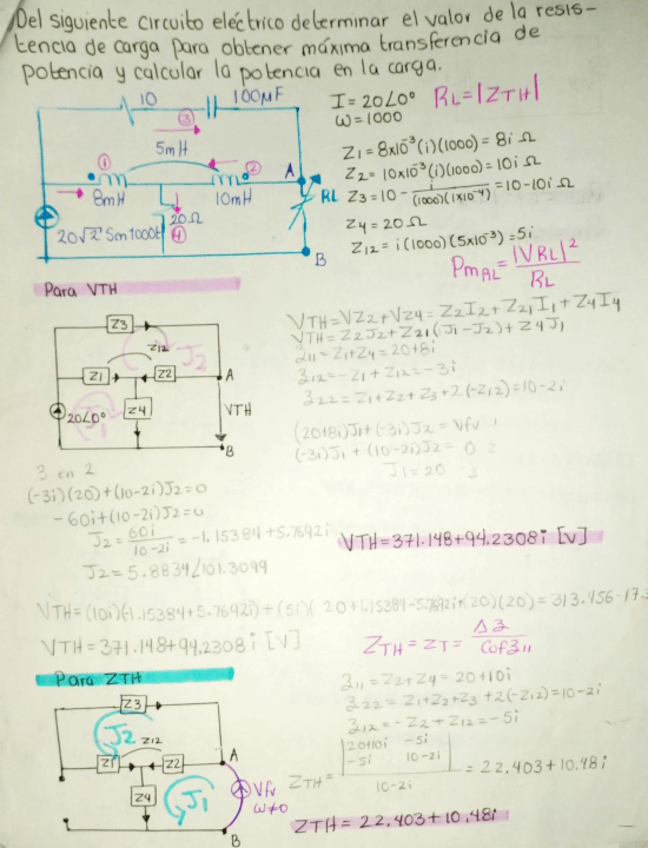 Del siguiente circuito eléctrico determinar el valor de la resis-
tencia de carga para obtener máxima transferencia de
potencia y calcular la potencia en la carga.
10
100μF
③
5mH
①
②
8mH
10mH
A
RL
20Ω
④
20√2 Sen1000t
B
I = 20∠0°
RL=|ZTH|
ω=1000
Z1 = 8x10⁻³(i)(1000) = 8i Ω
Z2 = 10x10⁻³(i)(1000) = 10i Ω
Z3 = 10 - i/(1000)(1x10⁻⁴) = 10-10i Ω
Z4 = 20 Ω
Z12 = i(1000)(5x10⁻³) = 5i
PmRL = |VRL|²/RL
Para VTH
Z3
Z12
J2
Z1
Z2
A
20∠0°
J1
Z4
VTH
B
VTH = VZ2 + VZ4 = Z2I2 + Z21I1 + Z4I4
VTH = Z2J2 + Z21(J1-J2) + Z4J1
з11 = Z1+Z4 = 20+8i
з12 = -Z1 + Z12 = -3i
з22 = Z1 + Z2 + Z3 + 2(-Z12) = 10-2i
(20+8i)J1 + (-3i)J2 = Vfv 1
(-3i)J1 + (10-2i)J2 = 0 2
J1 = 20 3
3 en 2
(-3i)(20)+(10-2i)J2=0
-60i+(10-2i)J2=0
J2 = 60i/10-2i = -1.15384+5.7692i
J2 = 5.8834∠101.3099
VTH=371.148+94.2308i [V]
VTH= (10i)(-1.15384+5.7692i)+(5i)(20+1.15384-5.7692i)+(20)(20)= 313.456-17.3
VTH= 371.148+94.2308i [V]
ZTH = ZT = Δз/Cofз11
Para ZTH
Z3
J2
Z12
Z1
Z2
A
Z4
J1
Vfv
ω≠0
B
з11 = Z2+Z4 = 20+10i
з22 = Z1+Z2+Z3 +2(-Z12)=10-2i
з12 = -Z2 + Z12 = -5i
ZTH = |20+10i -5i|
|-5i 10-2i|
10-2i
= 22.403 + 10.48i
ZTH = 22.403+10.48i